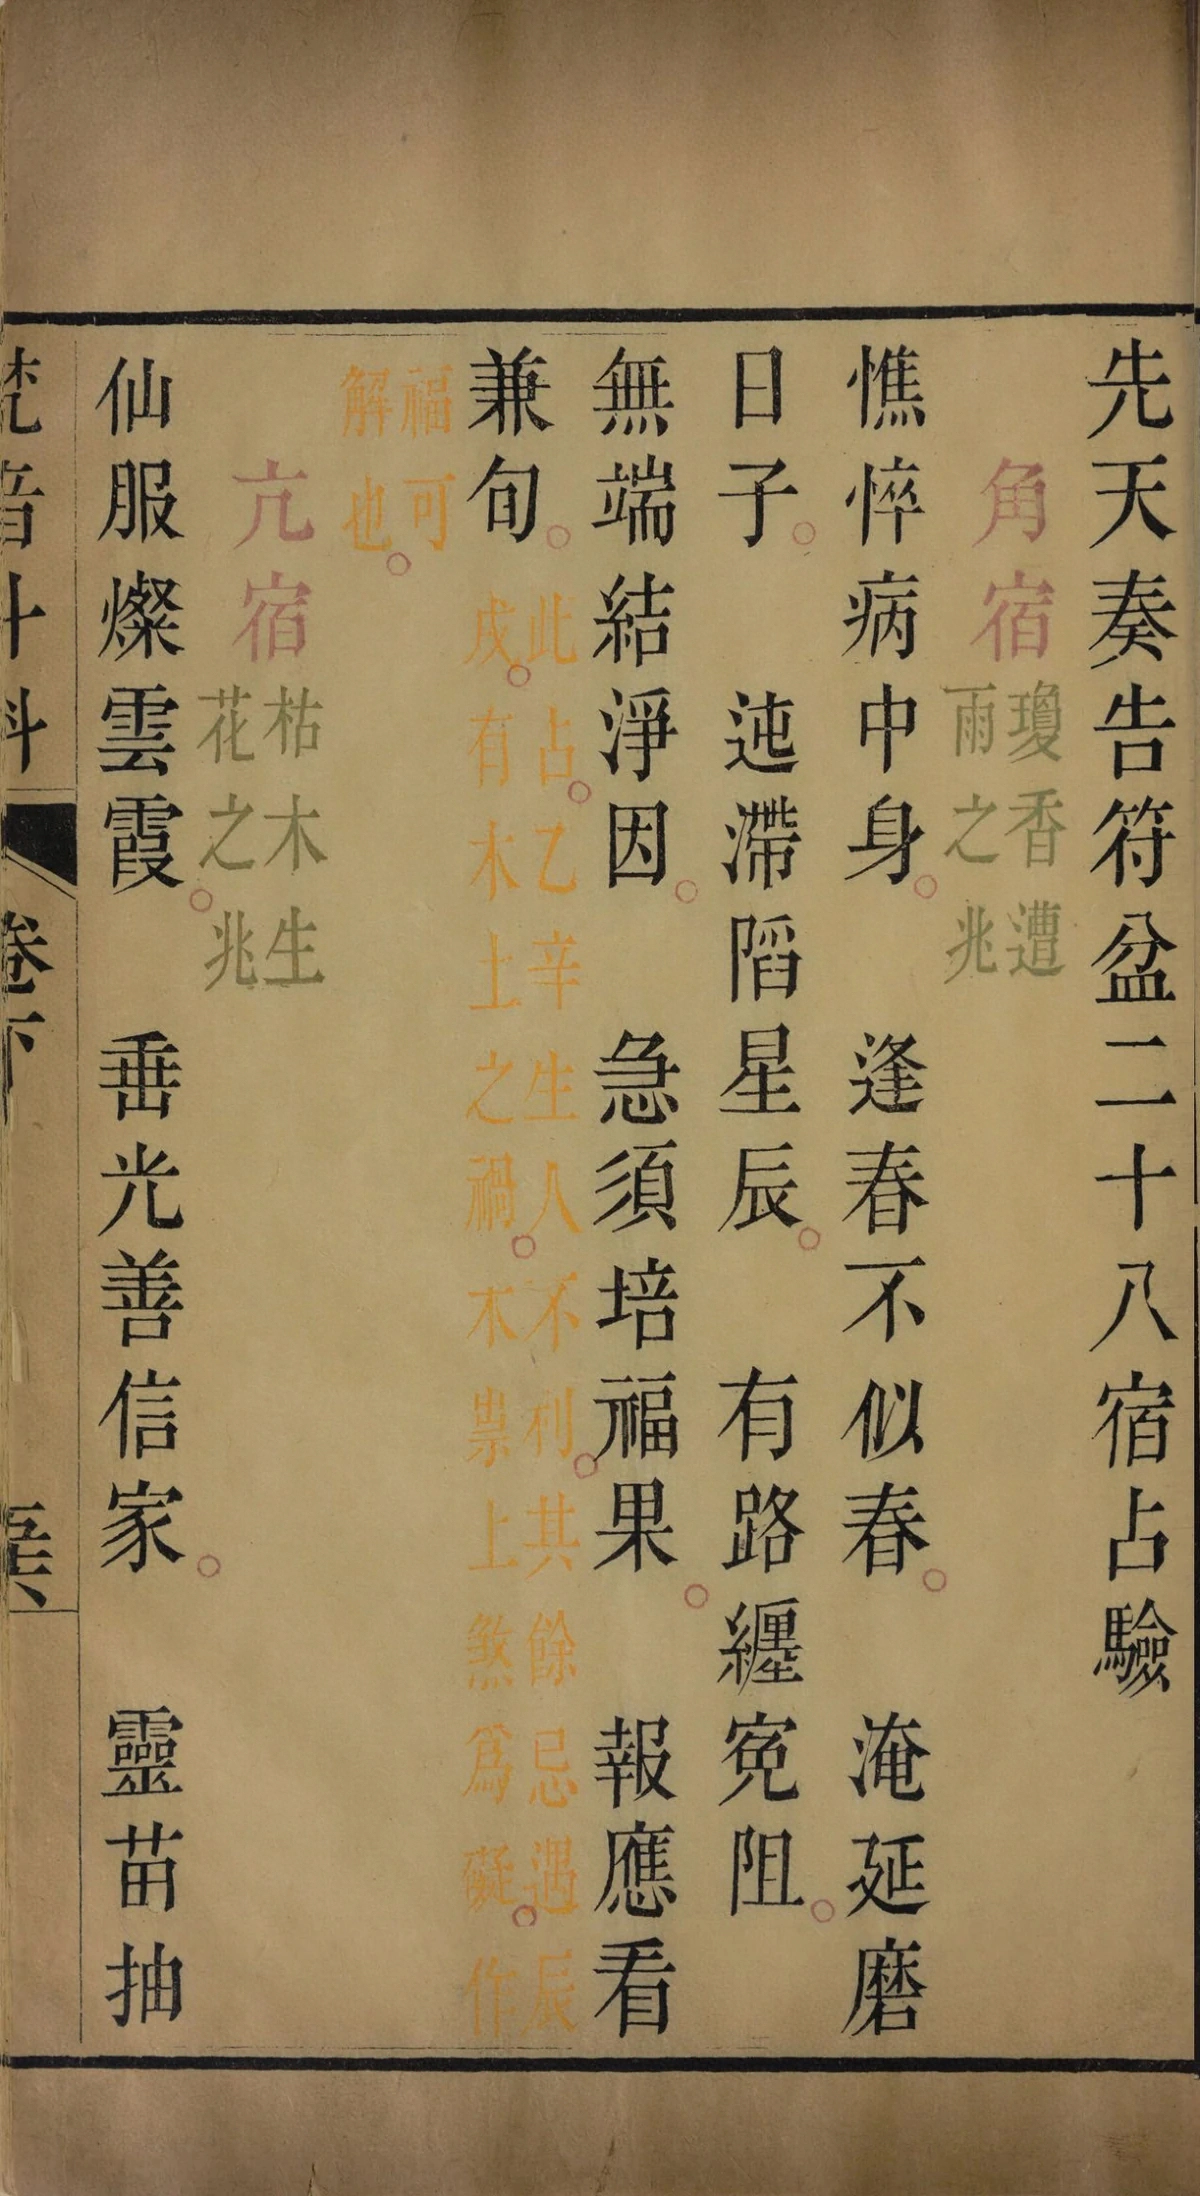 先天奏告符盆二十八宿占驗
角宿
瓊香遭
雨之兆
憔悴病中身。逢春不似春。淹延磨
日子。迍滯陷星辰。有路纏寃阻。
無端結淨因。急須培福果。報應看
兼旬。
此占。乙辛生人不利。其餘忌遇辰
戌。有木土之禍。木祟土煞爲礙。作
福可
解也。
亢宿
枯木生
花之兆
仙服燦雲霞。垂光善信家。靈苗抽
梵音斗科
卷下